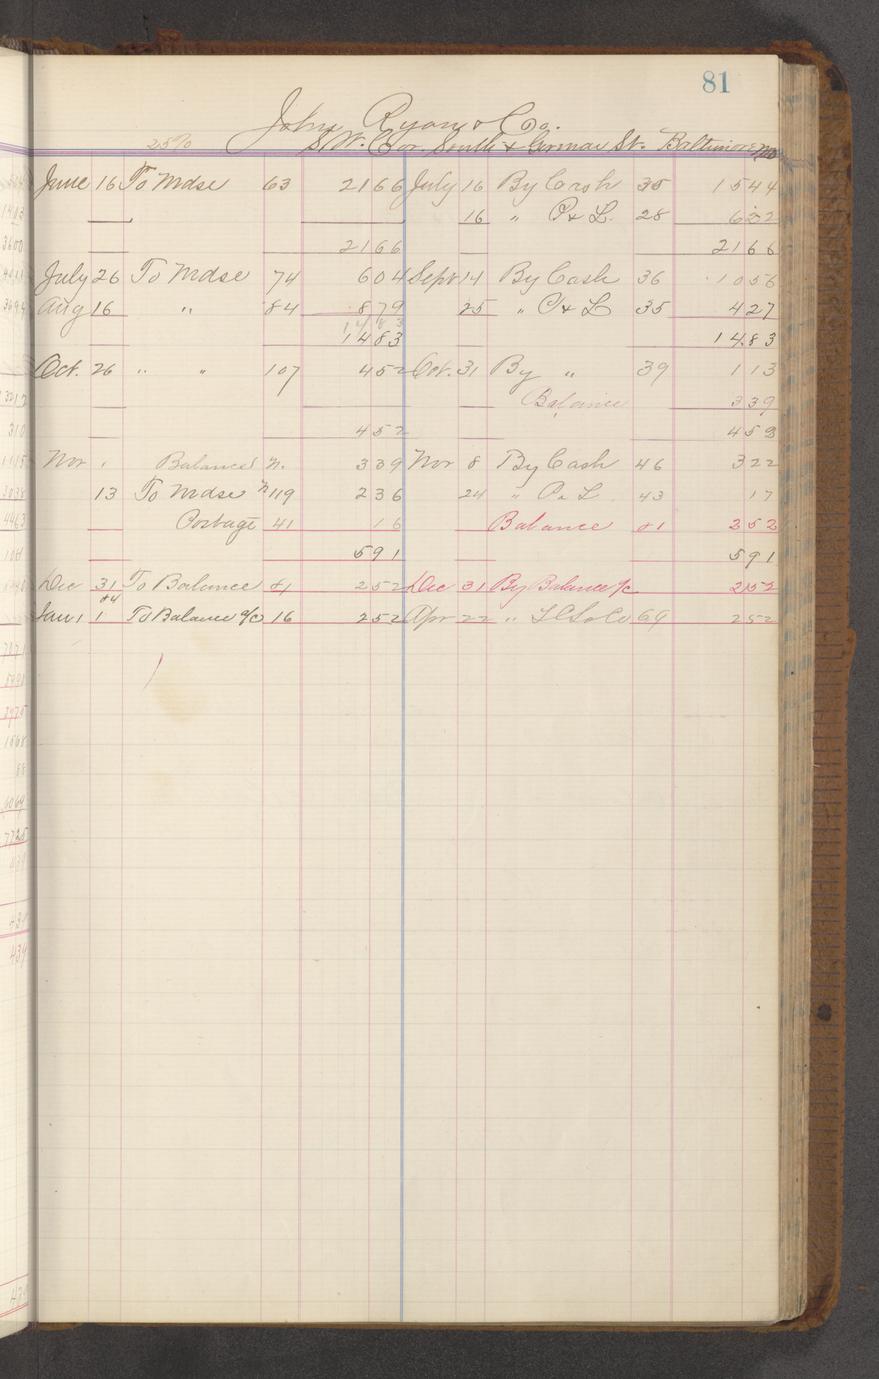 81
John Ryan & Co.
25% S.W. Cor. South & German St. Baltimore Md
June 16 To Mdse 63 2166 July 16 By Cash 35 1544
16 " P & L. 28 622
2166 2166
July 26 To Mdse 74 604 Sept 14 By Cash 36 1056
Aug 16 " 84 879 25 " P & L 35 427
1483
1483 1483
Oct. 26 " " 107 452 Oct. 31 By " 39 113
Balance 339
452 452
Nov 1 Balance 339 Nov 8 By Cash 46 322
13 To Mdse 119 236 24 " P & L 43 17
Portage 41 16 Balance 81 252
591 591
Dec 31 To Balance 81 252 Dec 31 By Balance a/c 252
84
Jan 1 To Balance a/c 16 252 Apr 22 " 69 252